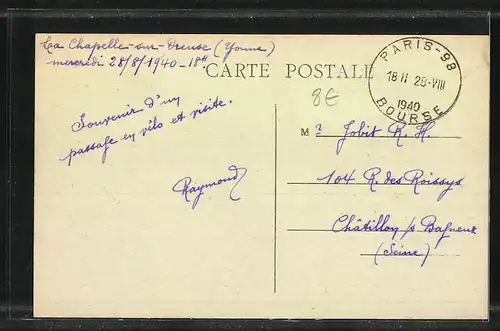 La Chapelle-sur-Oreuse (Yonne)
mercredi 28/8/1940 - 18H
CARTE POSTALE
PARIS-98
18 H 28-VIII
1940
BOURSE
8€
Souvenir d'un
passage en vélo et visite.
Raymond
M Jobit R. H.
104 R. des Roissys
Châtillon p Bagneux
(Seine)